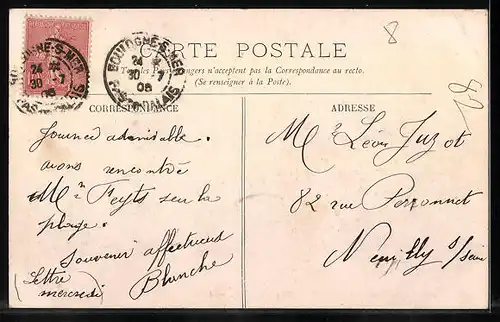 8
CARTE POSTALE
Tous les Pays étrangers n'acceptent pas la Correspondance au recto.
(Se renseigner à la Poste).
BOULOGNE-S-MER
24
30 -7
06
PAS-DE-CALAIS
BOULOGNE-S-MER
24
30 -7
06
PAS-DE-CALAIS
CORRESPONDANCE
Journée admirable.
avons rencontré
Mr Feyts sur la
plage.
Souvenir affectueux
Blanche
(Lettre
mercredi)
ADRESSE
82
Mr Léon Juzot
82 rue Perronnet
Neuilly s/ Seine